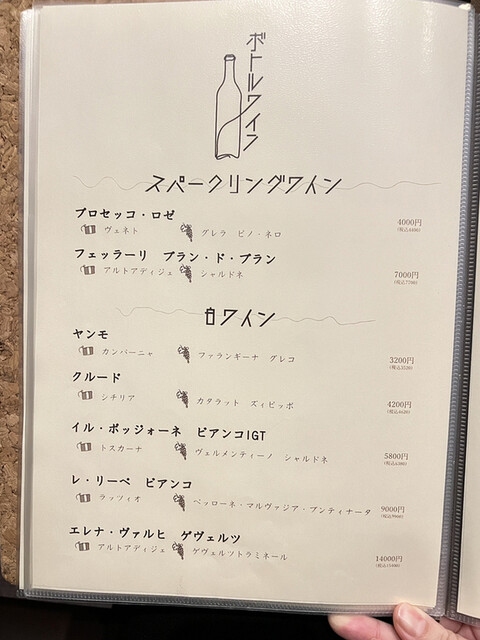 ボトルワイン
スパークリングワイン
プロセッコ・ロゼ
ヴェネト グレラ ピノ・ネロ 4000円
(税込4400)
フェッラーリ ブラン・ド・ブラン
アルトアディジェ シャルドネ 7000円
(税込7700)
白ワイン
ヤンモ
カンパーニャ ファランギーナ グレコ 3200円
(税込3520)
クルード
シチリア カタラット ズィビッボ 4200円
(税込4620)
イル・ポッジォーネ ビアンコIGT
トスカーナ ヴェルメンティーノ シャルドネ 5800円
(税込6380)
レ・リーペ ビアンコ
ラッツィオ ベッローネ・マルヴァジア・プンティナータ 9000円
(税込9900)
エレナ・ヴァルヒ ゲヴェルツ
アルトアディジェ ゲヴェルツトラミネール 14000円
(税込15400)